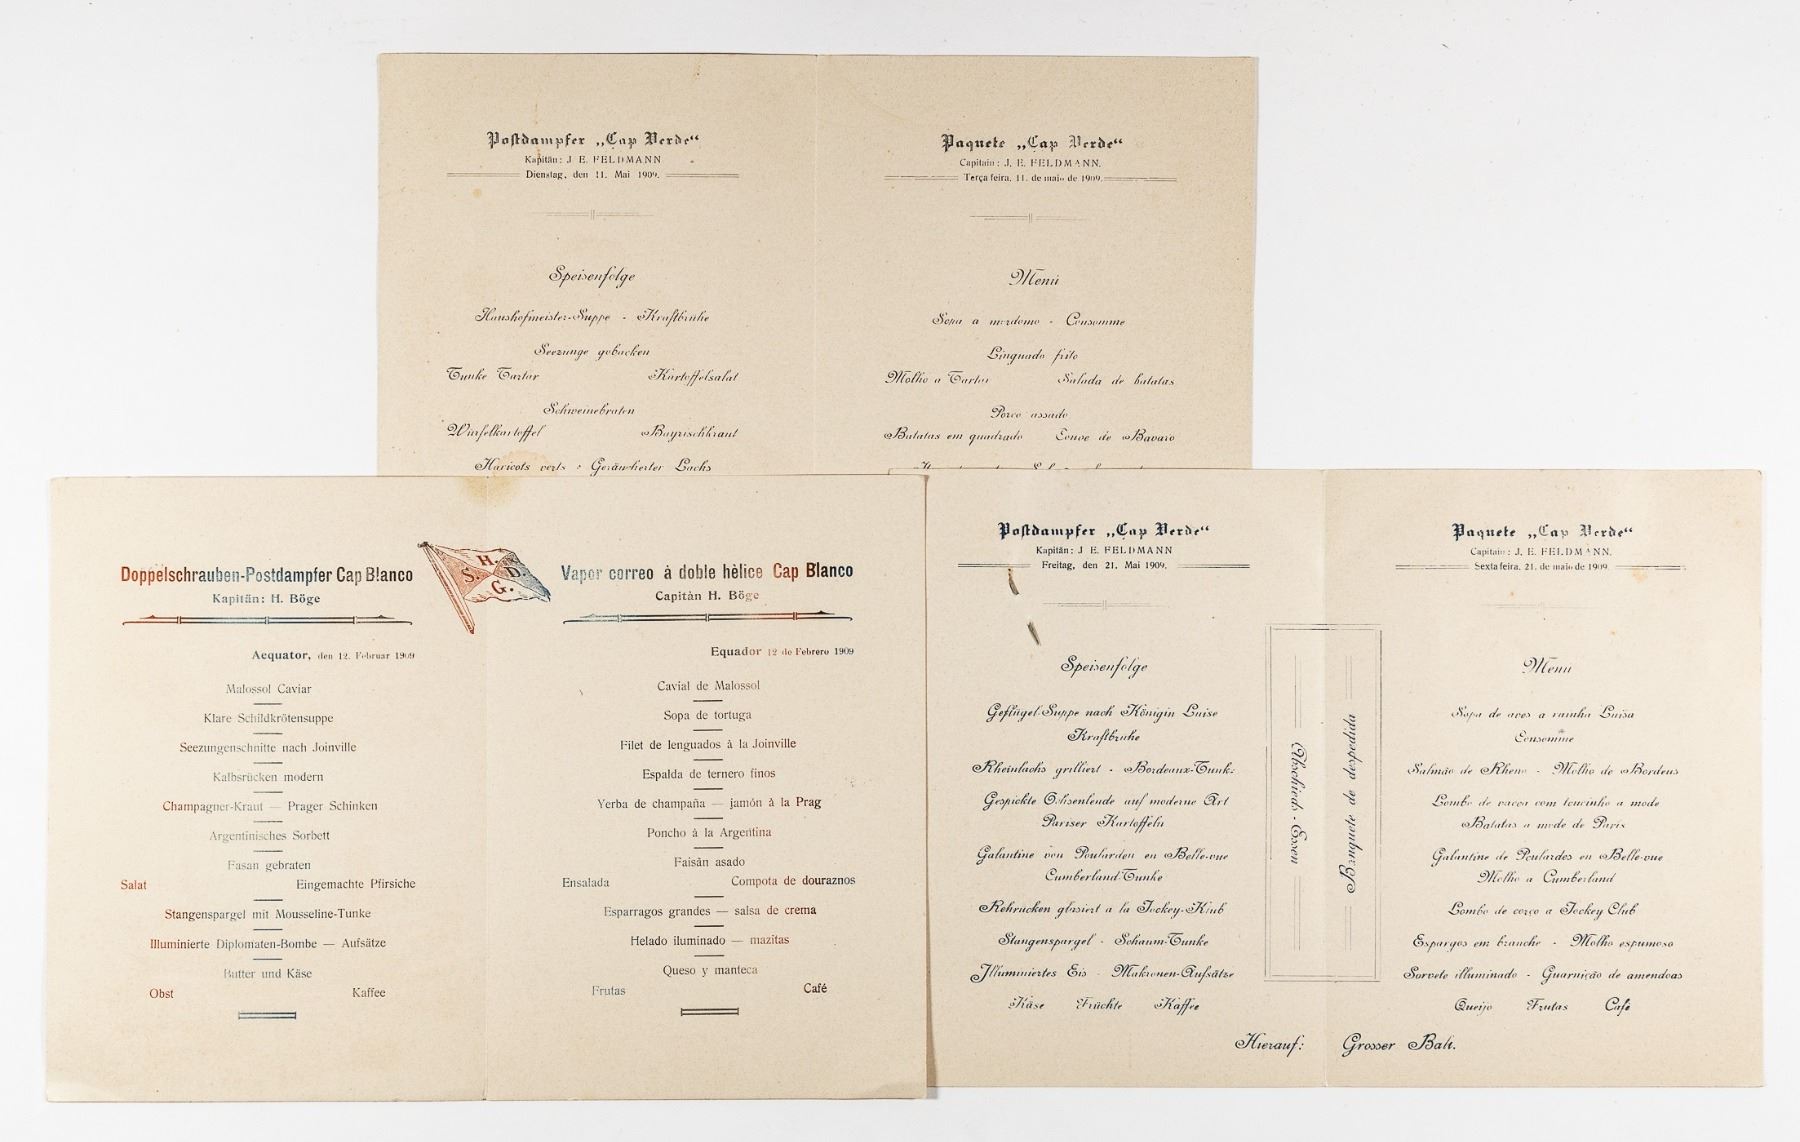 Postdampfer „Cap Verde“
Kapitän: J E. FELDMANN
Dienstag, den 11. Mai 1909.
Speisenfolge
Haushofmeister-Suppe - Kraftbrühe
Seezunge gebacken
Tunke Tartar Kartoffelsalat
Schweinebraten
Würfelkartoffel Bayrischkraut
Haricots verts - Geräucherter Lachs
Paquete „Cap Verde“
Capitain: J. E. FELDMANN.
Terça feira, 11. de maio de 1909.
Menú
Sopa a mordomo - Consomme
Linguado frito
Molho a Tartar Salada de batatas
Porco assado
Batatas em quadrado Couve de Bavaro
Doppelschrauben-Postdampfer Cap Blanco
Kapitän: H. Böge
Aequator, den 12. Februar 1909
Malossol Caviar
Klare Schildkrötensuppe
Seezungenschnitte nach Joinville
Kalbsrücken modern
Champagner-Kraut — Prager Schinken
Argentinisches Sorbett
Fasan gebraten
Salat Eingemachte Pfirsiche
Stangenspargel mit Mousseline-Tunke
Illuminierte Diplomaten-Bombe — Aufsätze
Butter und Käse
Obst Kaffee
H.
S. D.
G.
Vapor correo à doble hèlice Cap Blanco
Capitàn H. Böge
Equador 12 de Febrero 1909
Cavial de Malossol
Sopa de tortuga
Filet de lenguados à la Joinville
Espalda de ternero finos
Yerba de champaña — jamón à la Prag
Poncho à la Argentina
Faisân asado
Ensalada Compota de douraznos
Esparragos grandes — salsa de crema
Helado iluminado — mazitas
Queso y manteca
Frutas Café
Postdampfer „Cap Verde“
Kapitän: J E. FELDMANN
Freitag, den 21. Mai 1909.
Speisenfolge
Geflügel-Suppe nach Königin Luise
Kraftbrühe
Rheinlachs grilliert - Bordeaux-Tunke
Gespickte Ochsenlende auf moderne Art
Pariser Kartoffeln
Galantine von Poularden en Belle-vue
Cumberland-Tunke
Rehrücken glasiert a la Jockey-Klub
Stangenspargel - Schaum-Tunke
Jlluminiertes Eis - Makronen-Aufsätze
Käse Früchte Kaffee
Abschieds-Essen
Banquete de despedida
Paquete „Cap Verde“
Capitain: J. E. FELDMANN.
Sexta feira, 21. de maio de 1909.
Menú
Sopa de aves a rainha Luisa
Consomme
Salmão de Rheno - Molho de Bordeus
Lombo de vacca com toucinho a mode
Batatas a mode de Paris
Galantine de Poulardes en Belle-vue
Molho a Cumberland
Lombo de corço a Jockey Club
Espargos em branche - Molho espumoso
Sorvete illuminado - Guarnição de amendoas
Queijo Frutas Café
Hierauf: Grosser Ball.